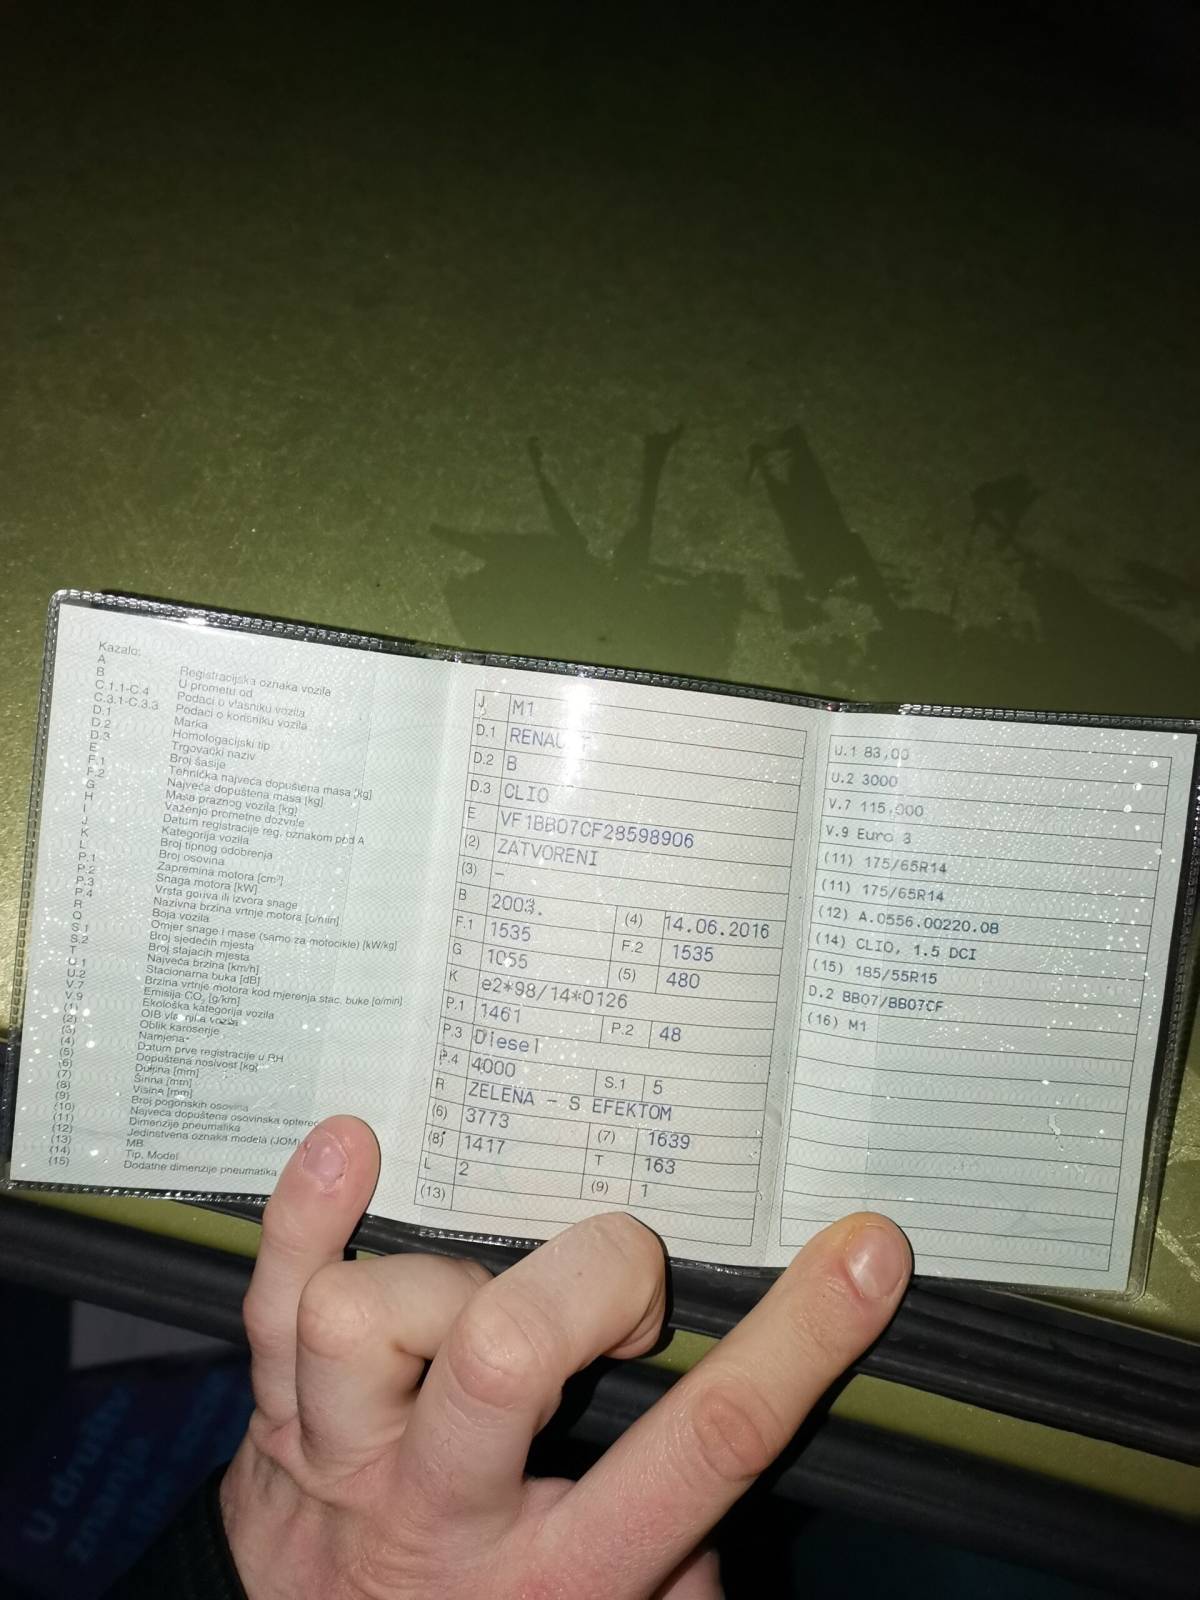 Kazalo:
A Registracijska oznaka vozila
B U prometu od
C.1.1-C.4 Podaci o vlasniku vozila
C.3.1-C.3.3 Podaci o korisniku vozila
D.1 Marka
D.2 Homologacijski tip
D.3 Trgovački naziv
E Broj šasije
F.1 Tehnička najveća dopuštena masa [kg]
F.2 Najveća dopuštena masa [kg]
G Masa praznog vozila [kg]
H Važenje prometne dozvole
I Datum registracije reg. oznakom pod A
J Kategorija vozila
K Broj tipnog odobrenja
L Broj osovina
P.1 Zapremina motora [cm³]
P.2 Snaga motora [kW]
P.3 Vrsta goriva ili izvora snage
P.4 Nazivna brzina vrtnje motora [o/min]
R Boja vozila
Q Omjer snage i mase (samo za motocikle) [kW/kg]
S.1 Broj sjedećih mjesta
S.2 Broj stajaćih mjesta
T Najveća brzina [km/h]
U.1 Stacionarna buka [dB]
U.2 Brzina vrtnje motora kod mjerenja stac. buke [o/min]
V.7 Emisija CO₂ [g/km]
V.9 Ekološka kategorija vozila
(1) OIB vlasnika vozila
(2) Oblik karoserije
(3) Namjena
(4) Datum prve registracije u RH
(5) Dopuštena nosivost [kg]
(6) Duljina [mm]
(7) Širina [mm]
(8) Visina [mm]
(9) Broj pogonskih osovina
(10) Najveća dopuštena osovinska
(11) Dimenzije pneumatika
(12) Jedinstvena oznaka modela (JOM)
(13) MB
(14) Tip, Model
(15) Dodatne dimenzije pneumatika
J M1
D.1 RENAU
D.2 B
D.3 CLIO
E VF1BB07CF28598906
(2) ZATVORENI
(3) –
B 2003. (4) 14.06.2016
F.1 1535 F.2 1535
G 1055 (5) 480
K e2*98/14*0126
P.1 1461 P.2 48
P.3 Diesel
P.4 4000 S.1 5
R ZELENA – S EFEKTOM
(6) 3773 (7) 1639
(8) 1417 T 163
L 2 (9) 1
(13)
U.1 83,00
U.2 3000
V.7 115,000
V.9 Euro 3
(11) 175/65R14
(11) 175/65R14
(12) A.0556.00220.08
(14) CLIO, 1.5 DCI
(15) 185/55R15
D.2 BB07/BB07CF
(16) M1
U društvu
znanja